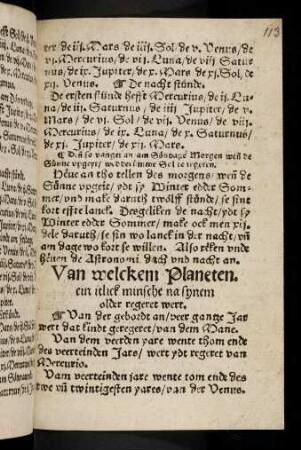 113
ter/ de iij. Mars de iiij. Sol/ de v. Venus/ de
vi. Mercurius/ de vij. Luna/ de viij Satur
nus/ de ix. Jupiter/ de x. Mars de xi. Sol/ de
xij. Venus. ¶ De nacht stünde.
De ersten stünde hefft Mercurius/ de ij. Lu-
na/ de iij. Saturnus/ de iiij Jupiter/ de v.
Mars/ de vi. Sol/ de vij. Venus/ de viij.
Mercurius/ de ix. Luna/ de x. Saturnus/
de xi. Jupiter/ de xij. Mars.
Sünne vpgeit/
Heue an tho tellen des morgens/ wen de
Sünne vpgeit/ ydt sy Winter edder Som-
mer/ vnd make daruth twölff stünde/ se sint
kort effte lanck. Desgeliken de nacht/ ydt sy
Winter edder Sommer/ make ock men xij.
dele daruth/ se syn so lanck in der nacht/ vñ
am dage wo kort se willen. Also reken vnde
heuen de Astronomi dach vnd nacht an.
Van welckem Planeten.
ein itlick minsche na synem
older regeret wert.
¶ Van der gebordt an/ veer gantze Jar
wert dat kindt geregeret/ van dem Mane.
Van dem veerden yare wente thom ende
des veerteinden Jars/ wert ydt regeret van
Mercurio.
Vam veerteinden jare wente tom ende des
twe vñ twintigesten yares/ van der Venus.